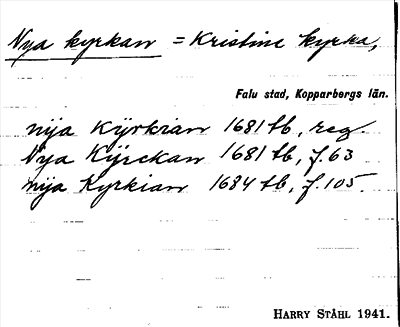 Nya kyrkan = Kristine kyrka,
Falu stad, Kopparbergs län.
nija Kÿrkian 1681 tb, reg.
Nya Kÿrckan 1681 tb, f. 63
nija Kyrkian 1684 tb, f. 105.
HARRY STÅHL 1941.